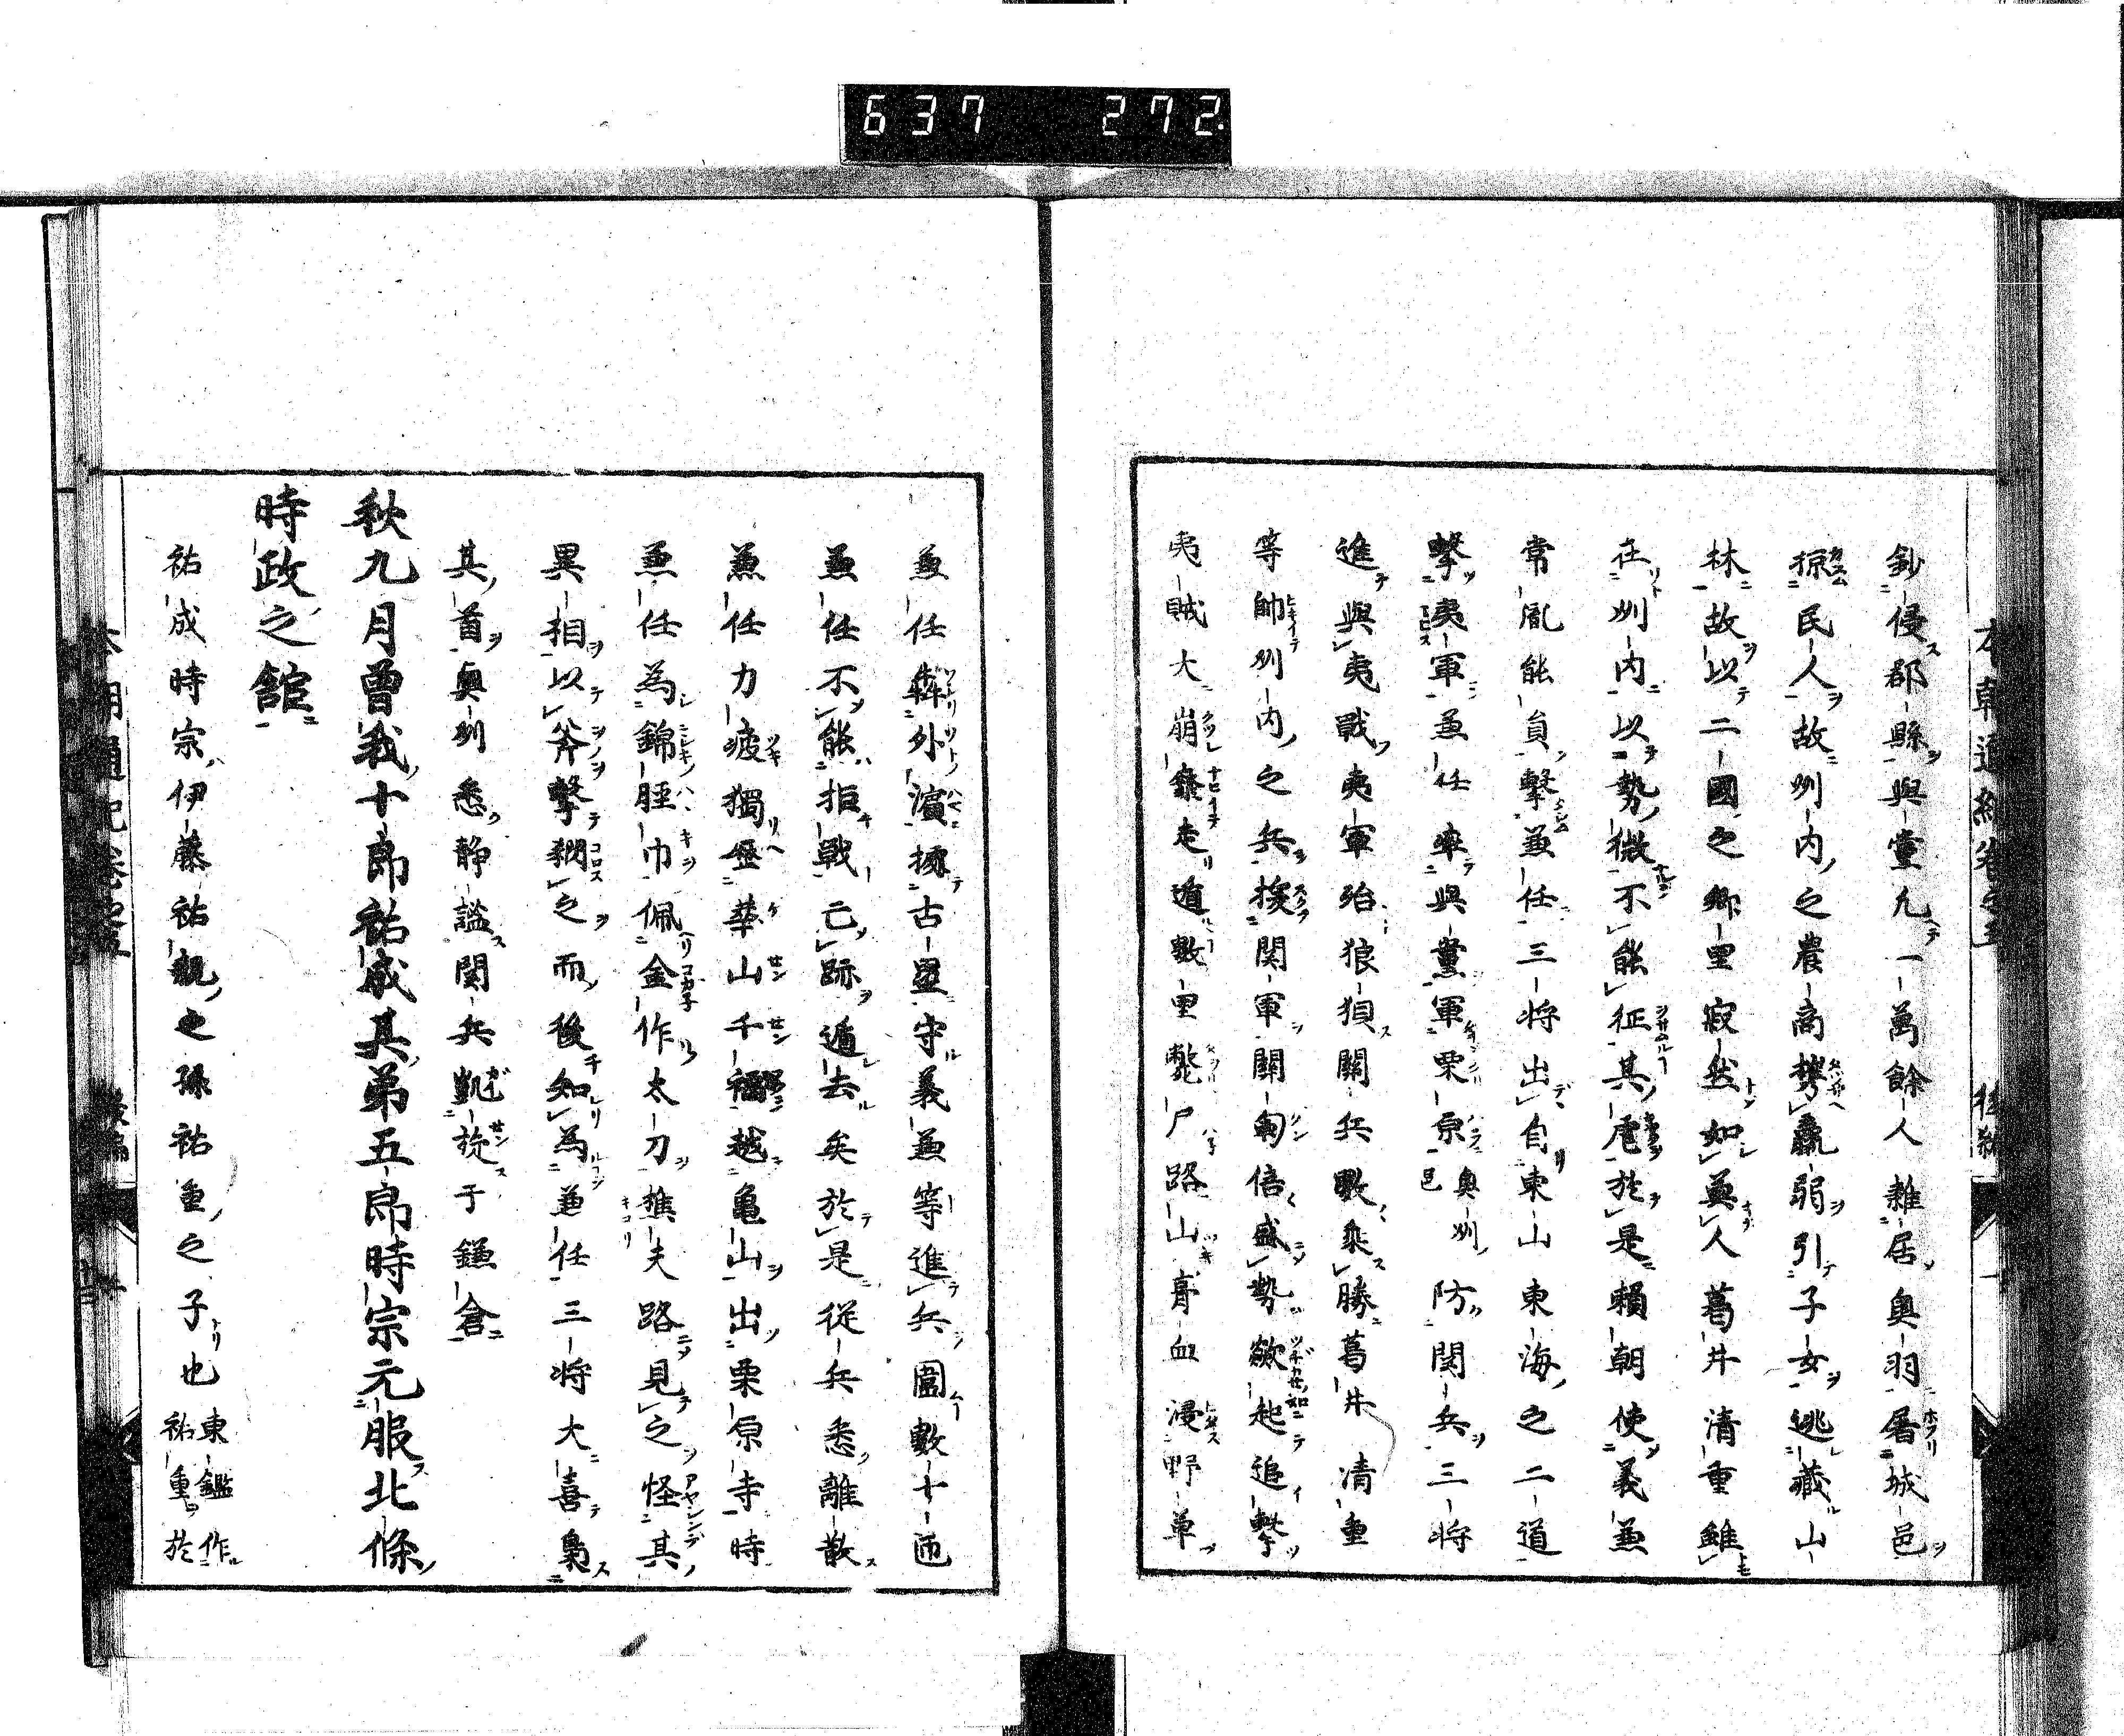 637 272
鈔侵郡縣與黨凡一萬餘人雜居奥羽屠城邑
掠民人故州内之農商携羸弱引子女逃藏山
林故以二國之鄉里寂然如無人葛井清重雖
在州内以勢微不能征其虐於是賴朝使義兼
常胤能員擊兼任三将出自東山東海之二道
擊夷軍兼任率與黨軍栗原奥州邑防関兵三将
進與夷戰夷軍殆狼狽關兵數乘勝葛井清重
等帥州内之兵援関軍關軔倍盛勢歘起追擊
夷賊大崩走遁數里斃尸路山膏血浸野草
兼任犇外濱據古壘守義兼等進兵圍數十匝
兼任不能拒戰亡跡遁去矣於是從兵悉離散
兼任力疲獨歷華山千福越亀山出栗原寺時
兼任為錦脛巾佩金作太刀樵夫路見之怪其
異相以斧擊殺之而後知為兼任三将大喜梟
其首奥州悉静謐関兵凱旋于鎌倉
秋九月曾我十郎祐成其弟五郎時宗元服北條
時政之館
祐成時宗伊藤祐親之孫祐重之子也東鑑作祐重於